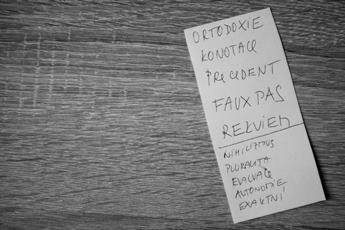 ORTODOXIE
KONOTACE
PRECEDENT
FAUX PAS
REKVIEM
NIHILISMUS
PLURALITA
EVALUACE
AUTONOMIE
EXAKTNÍ